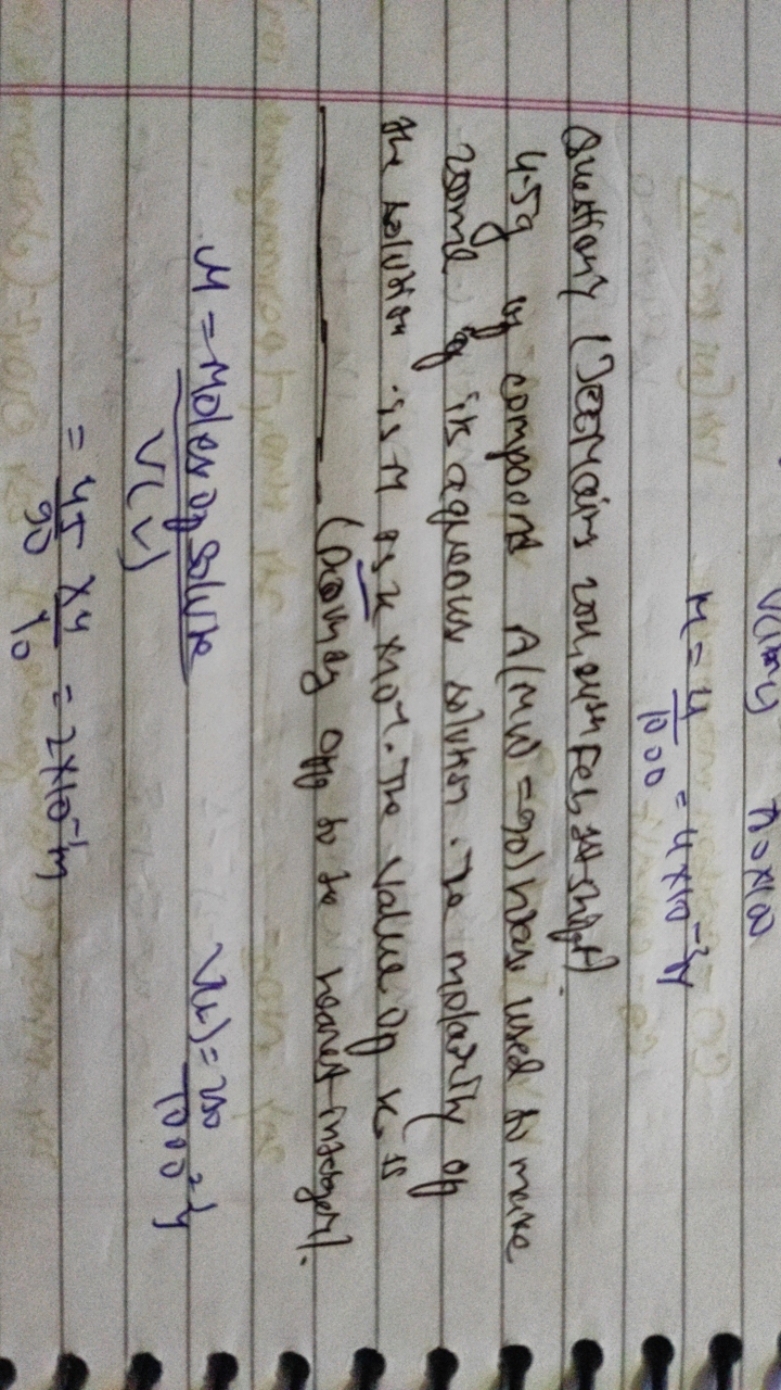 M = 4/1000 = 4×10⁻³M
Question (JEE Mains 2021, 24th Feb, 1st shift)
4.5g of compound A (MW = 90) was used to make
250mL of its aqueous solution. The molarity of
the solution is M as x ×10⁻¹. The value of x is
(Rounded off to the nearest integer).
M = Moles of solute / V(L)
V(L) = 250/1000 = 1/4
= 45/90 × 4/10 = 2×10⁻¹M